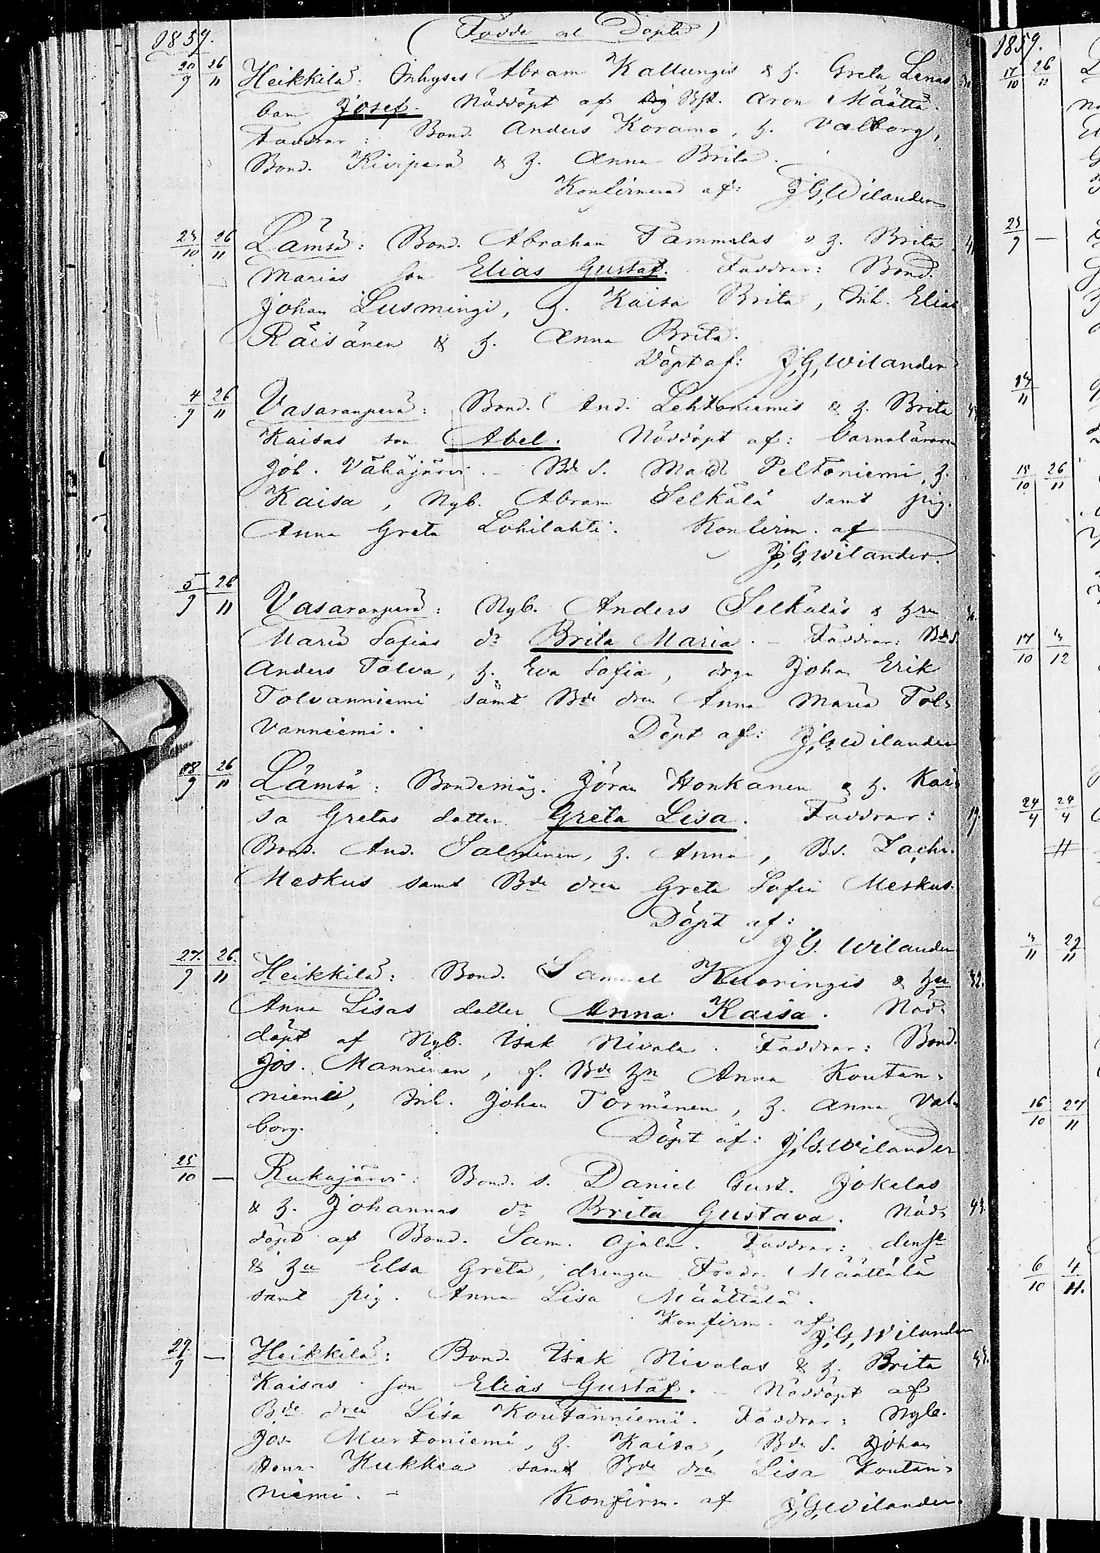 1859.
(Födde et Döpte)
20/9 26/11 Heikkilä: Inhyses Abram Kallungis & h. Greta Lenas
barn Josef. Nöddöpt af Bs. Aron Määttä.
Faddrar: Bond. Anders Koramo, h. Valborg,
Bond. Kiviperä & h. Anna Brita.
Konfirmerad af: J.G.Wilander
23/10 26/11 Lämsä: Bond. Abraham Tammelas & h. Brita
Marias son Elias Gustaf. Faddrar: Bond.
Johan Lusmingi, h. Kaisa Brita, Inh. Elias
Räisänen & h. Anna Brita.
Döpt af: J.G.Wilander
4/9 26/11 Vasaraperä: Bond. And. Lehtoniemis & h. Brita
Kaisas son Abel. Nöddöpt af: barnaläraren
Joh. Vähäjärvi. – Bd s. Matts Peltoniemi, h.
Kaisa, Nyb. Abram Selkälä samt pig.
Anna Greta Lohilahti. Konfirm. af
J.G.Wilander.
5/9 26/11 Vasaraperä: Nyb. Anders Selkäläs & hru
Maria Sofias dr Brita Maria. – Faddrar: Bds
Anders Tolva, h. Eva Sofia, drgn Johan Erik
Tolvanniemi samt Bde dren Anna Maria Tol-
vanniemi. Döpt af: J.G.Wilander
18/9 26/11 Lämsä: Bondemåg. Jöran Honkanen & h. Kai-
sa Gretas dotter Greta Lisa. Faddrar: 19
Bond. And. Salminen, h. Anna, Bs. Zachr.
Meskus samt Bde dren Greta Sofia Meskus.
Döpt af:
J.G. Wilander
27/9 26/11 Heikkilä: Bond. Samuel Kuoringis & hru 32.
Anna Lisas dotter Anna Kaisa. Nöd-
döpt af Nyb. Isak Nivala. Faddrar: Bond.
Jos. Manninen, f. Bde hn Anna Koutan-
niemi, Inh. Johan Törmänen, h. Anna Val-
borg. Döpt af: J.G.Wilander
25/10 – Rukajärvi: Bond. s. Daniel Gust. Jokelas
& h. Johannas dr Brita Gustava. Nöd-
döpt af Bond. Sam. Ajala. Faddrar: densle
& hu Elsa Greta, drengen Fredr. Määttälä
samt pig. Anna Lisa Määttälä.
Konfirm. af J.G.Wilander
29/9 – Heikkilä: Bond. Isak Nivalas & h. Brita
Kaisas son Elias Gustaf. – Nöddöpt af
Bde dren Lisa Koutanniemi. Faddrar: Nyb.
Jos. Murtoniemi, h. Kaisa, Bde s. Johan
Henr. Kukkea samt Bde dren Lisa Koutan-
niemi. – Konfirm. af J.G.Wilander.
1859.
17/10 26/11
23/9 –
14/11
18/10 26/11
17/10 4/12
24/4 24/4
3/11 27/11
16/10 27/11
6/10 4/11